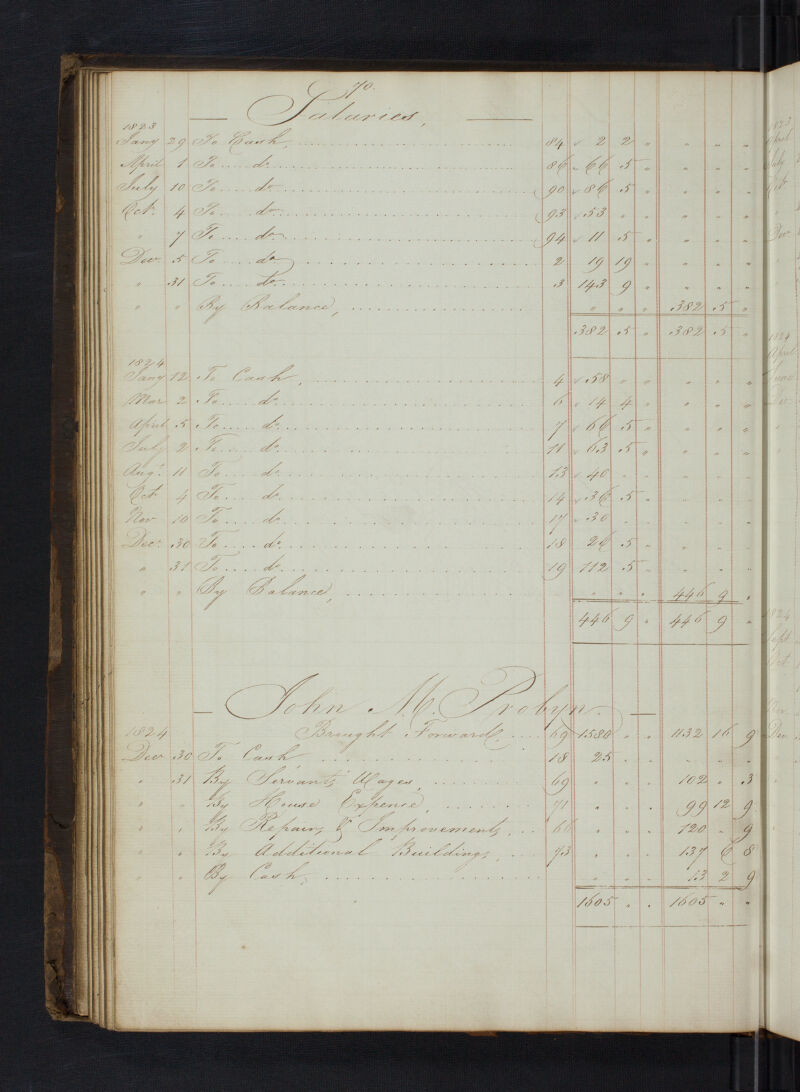 70.
Salaries,
1823
Jany 29 To Cash 84 2 2 " " " "
April 1 To do 86 66 5 " " " "
July 10 To do 90 86 5 " " " "
Oct. 4 To do 93 53 " " " " "
" 7 To do 94 11 5 " " " "
Decr. 5 To do 2 19 19 " " " "
" 31 To do 3 143 9 " " " "
" " By Balance, " " " 382 5 "
382 5 " 382 5 "
1824
Jany 12 To Cash, 4 58 " " " " "
Mar 2 To do 6 14 4 " " " "
April 5 To do 7 66 5 " " " "
July 2 To do 11 63 5 " " " "
Augt. 11 To do 13 40 " " " " "
Oct. 4 To do 14 36 5 " " " "
Nov 10 To do 17 30 " " " " "
Decr. 30 To do 18 26 5 " " " "
" 31 To do 19 112 5 " " " "
" " By Balance, " " " 446 9 "
446 9 " 446 9 "
John M. Probyn
1824 Brought Forward 69 1580 " " 1132 16 9
Decr 30 To Cash 18 25 " " " " "
" 31 By Servants Wages, 69 " " " 102 " 3
" " By House Expence, 71 " " " 99 12 9
" " By Repairs & Improvements 66 " " " 120 " 9
" By Additional Buildings, 73 " " " 137 6 8
" By Cash, " " " 13 2 9
1605 " " 1605 " "